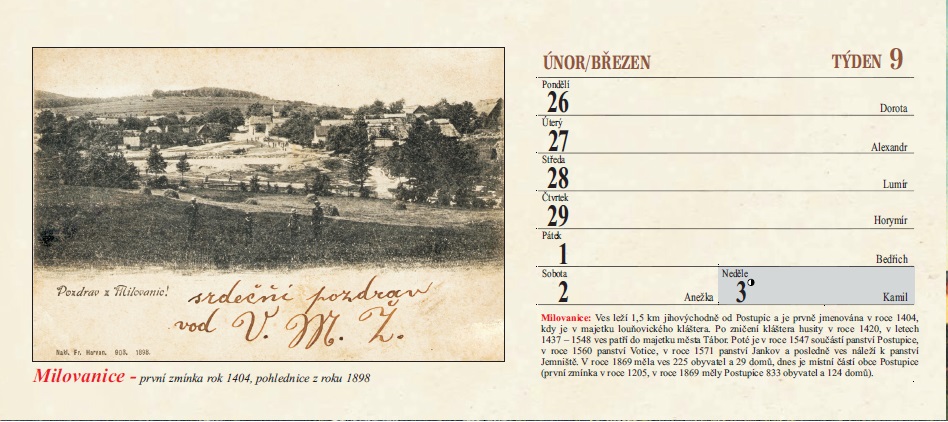 Pozdrav z Milovanic!
srdeční pozdrav
vod V. M. Ž.
Nakl. Fr. Harvan. 1898.
Milovanice - první zmínka rok 1404, pohlednice z roku 1898
ÚNOR/BŘEZEN TÝDEN 9
Pondělí
26 Dorota
Úterý
27 Alexandr
Středa
28 Lumír
Čtvrtek
29 Horymír
Pátek
1 Bedřich
Sobota
2 Anežka
Neděle
3 Kamil
Milovanice: Ves leží 1,5 km jihovýchodně od Postupic a je prvně jmenována v roce 1404,
kdy je v majetku louňovického kláštera. Po zničení kláštera husity v roce 1420, v letech
1437 – 1548 ves patří do majetku města Tábor. Poté je v roce 1547 součástí panství Postupice,
v roce 1560 panství Votice, v roce 1571 panství Jankov a posledně ves náleží k panství
Jemniště. V roce 1869 měla ves 225 obyvatel a 29 domů, dnes je místní částí obce Postupice
(první zmínka v roce 1205, v roce 1869 měly Postupice 833 obyvatel a 124 domů).